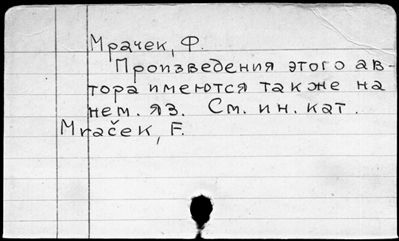 Мрачек, Ф.
Произведения этого ав-
тора имеются также на
нем. яз. См. ин. кат.
Mraček, F.